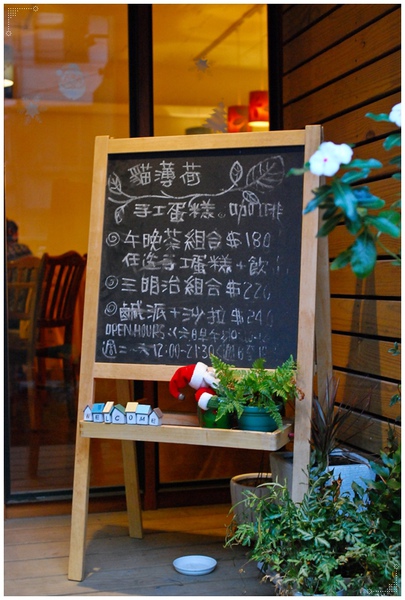 貓薄荷
手工蛋糕。咖啡
午晚茶組合$180
任選手工蛋糕+飲
三明治組合$220
鹹派+沙拉$240
OPEN.HOURS:
週二~六12:00-21:30
WELCOME